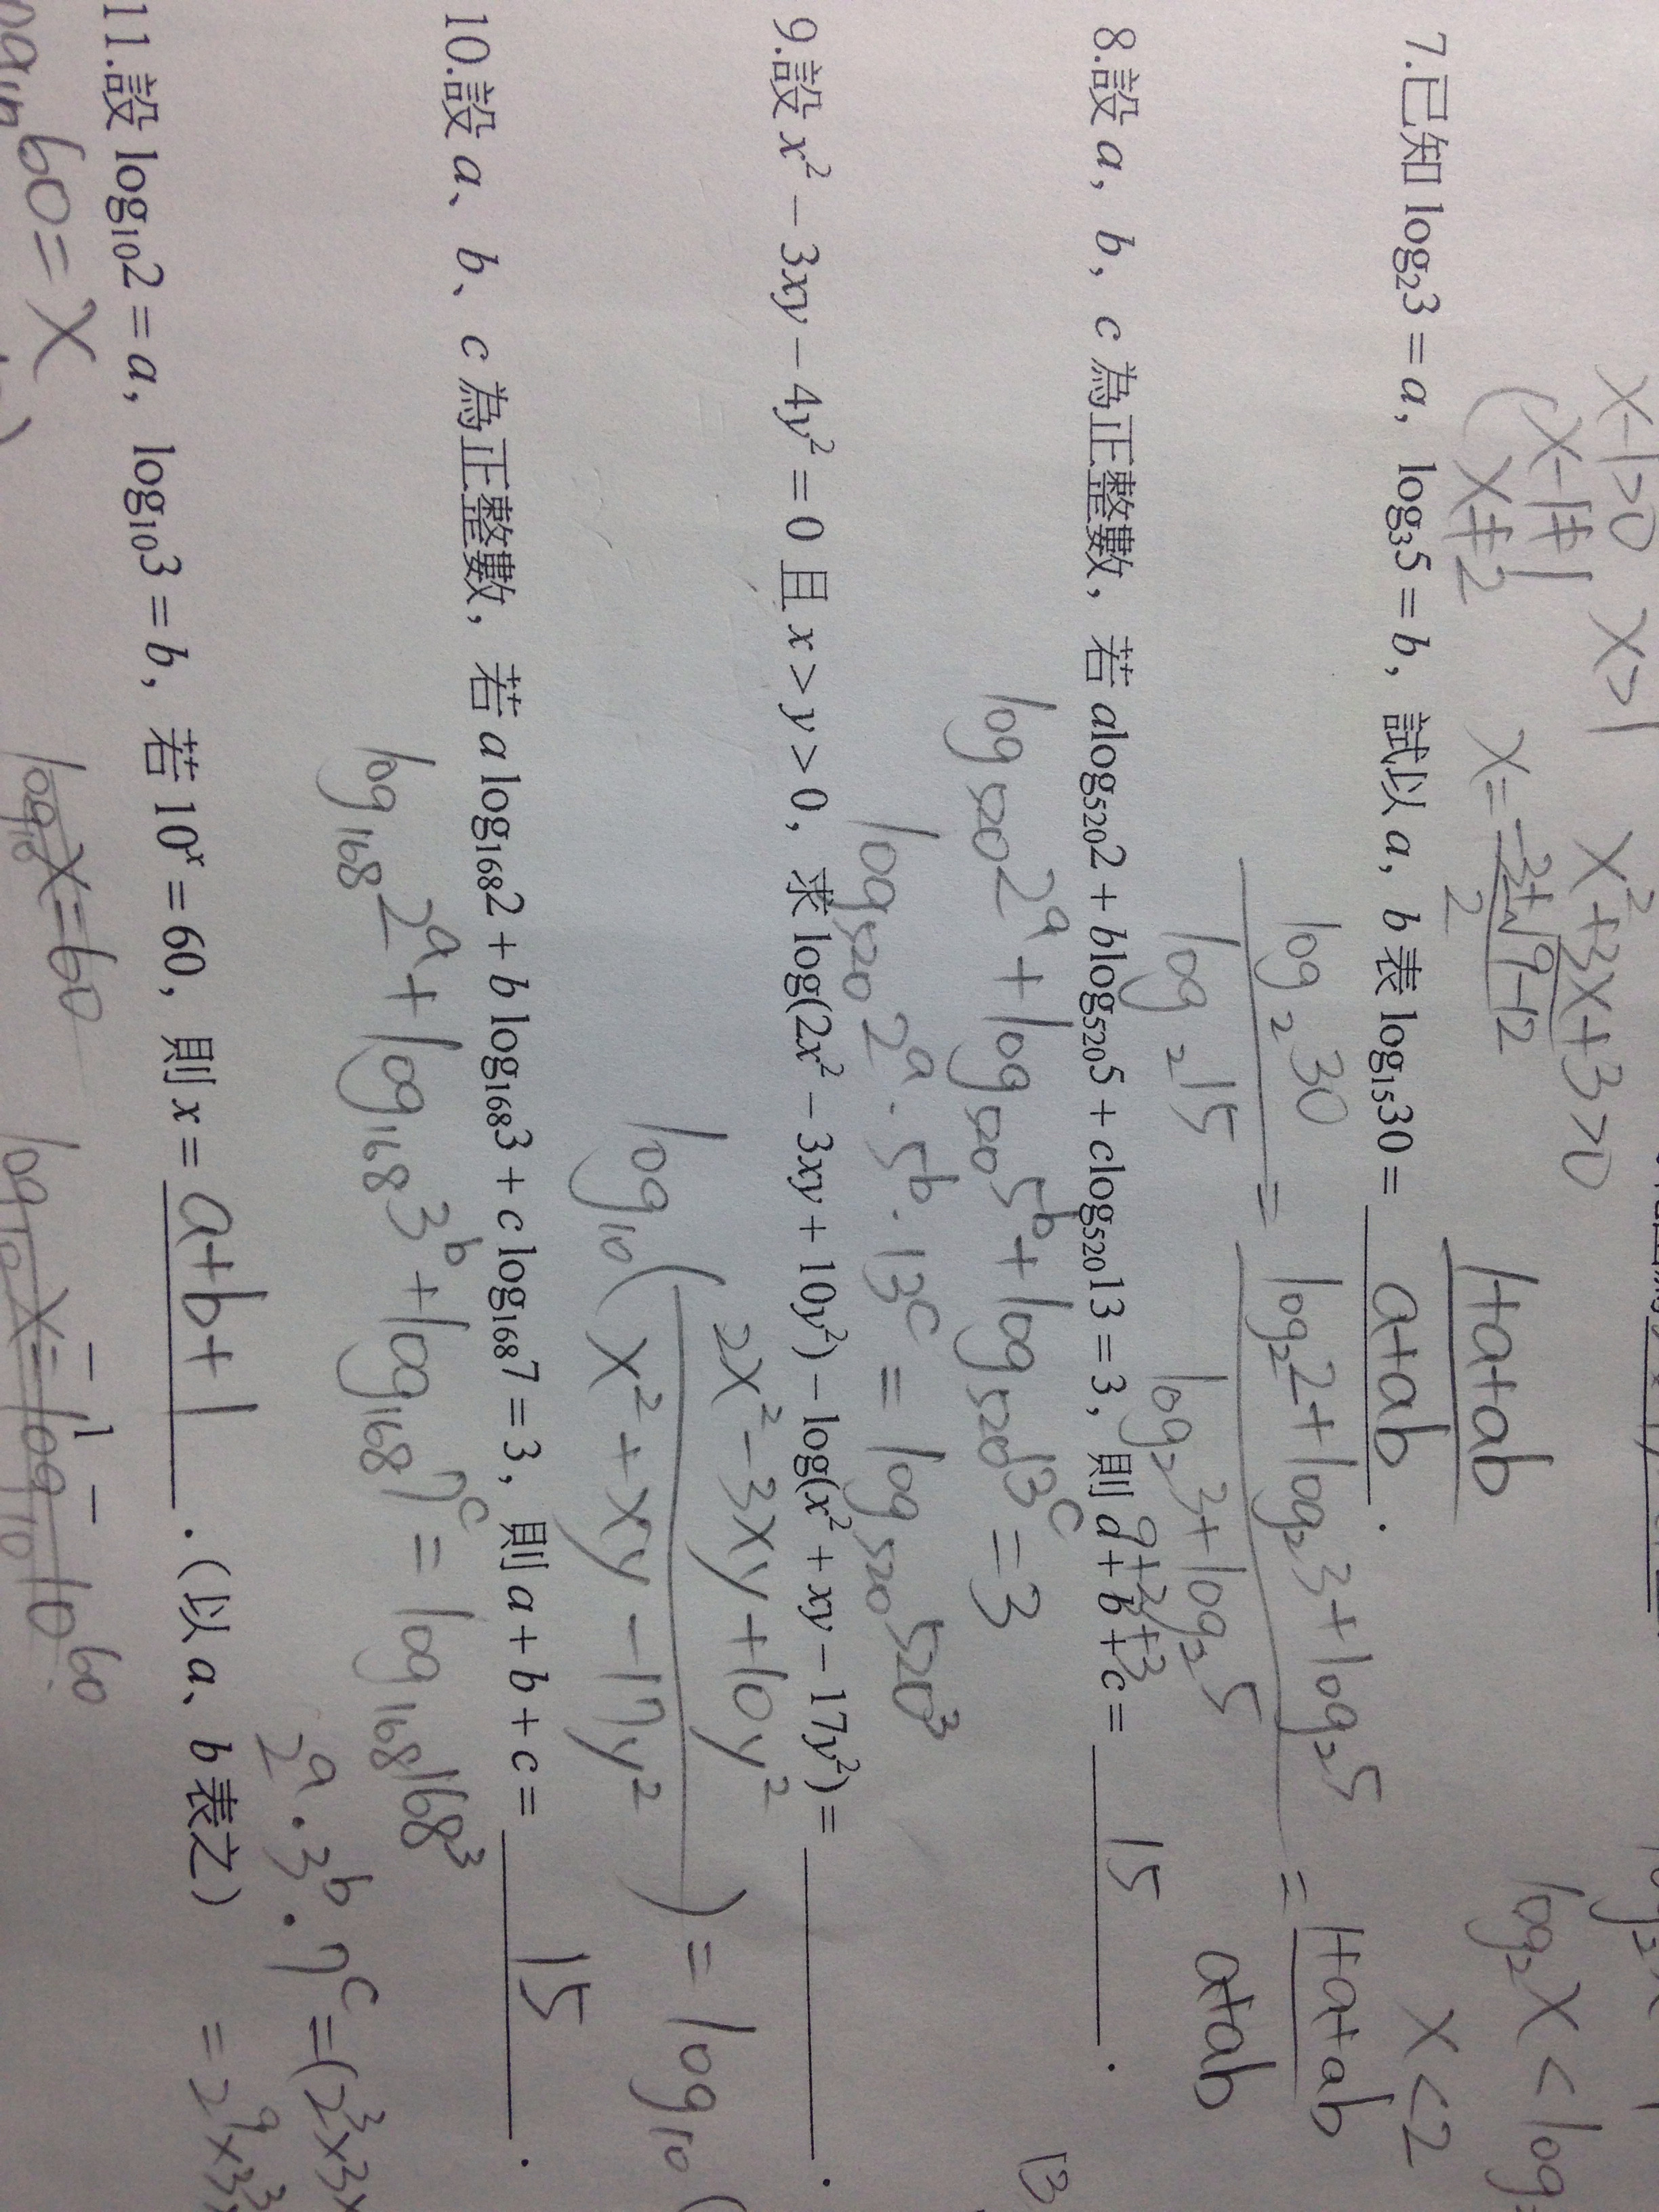 x-1>0 x>1 x²+3x+3>0
(x-1≠1
x≠2 x=
log₂x<log
x<2
1+a+ab
7.已知 log₂3 = a, log₃5 = b, 試以 a, b 表 log₁₅30 = a+ab .
log₂30 = log₂2+log₂3+log₂5 = 1+a+ab
log₂15 log₂3+log₂5 a+ab
9+3+3
8.設 a, b, c 為正整數, 若 alog₅₂₀2 + blog₅₂₀5 + clog₅₂₀13 = 3, 則 a + b + c = 15 .
log₅₂₀2ᵃ + log₅₂₀5ᵇ + log₅₂₀13ᶜ = 3
log₅₂₀2ᵃ·5ᵇ·13ᶜ = log₅₂₀520³
9.設 x² − 3xy − 4y² = 0 且 x > y > 0, 求 log(2x² − 3xy + 10y²) − log(x² + xy − 17y²) = .
2x²-3xy+10y²
log₁₀( ) = log₁₀(
x²+xy-17y²
10.設 a、b、c 為正整數, 若 a log₁₆₈2 + b log₁₆₈3 + c log₁₆₈7 = 3, 則 a + b + c = 15 .
log₁₆₈2ᵃ + log₁₆₈3ᵇ + log₁₆₈7ᶜ = log₁₆₈168³
2ᵃ·3ᵇ·7ᶜ = (2³×3×
= 2⁹×3³
11.設 log₁₀2 = a, log₁₀3 = b, 若 10ˣ = 60, 則 x = a+b+1 .(以 a、b 表之)
60 = x
log₁₀x=60